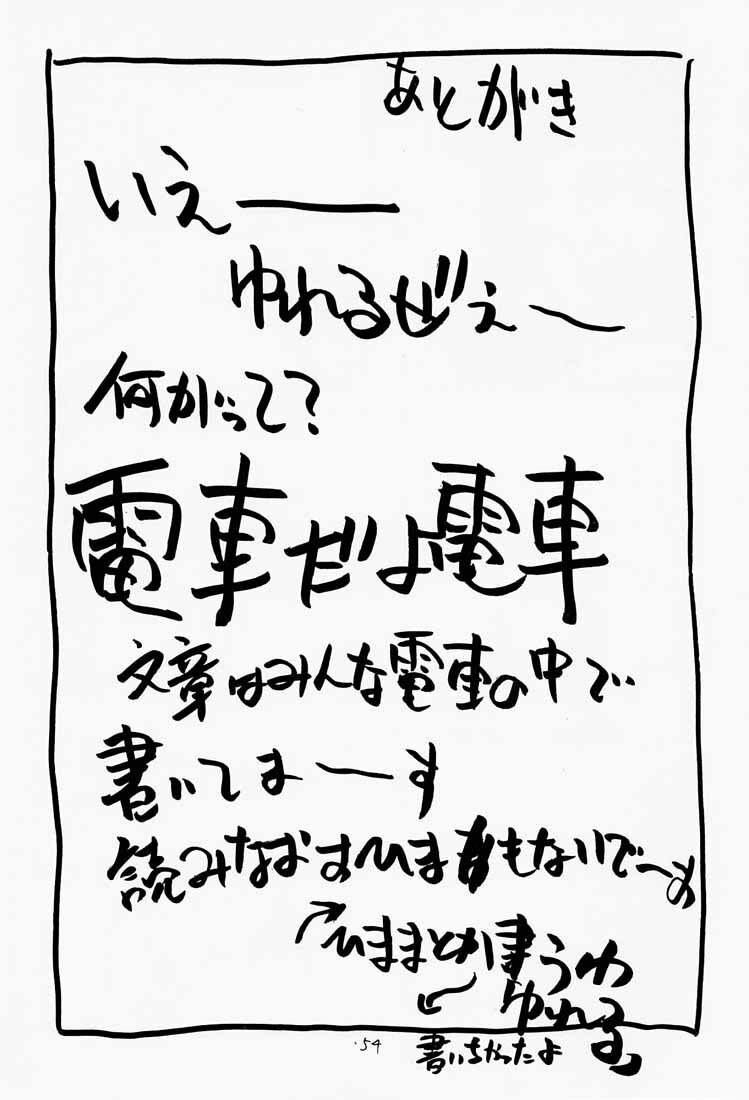 あとがき
いえーー
ゆれるぜぇ〜
何がって？
電車だよ電車
文章はみんな電車の中で
書いてま〜す
読みなおすひまもないで〜す
ひままとか書うわ
ゆれる。
書いちゃったよ
54